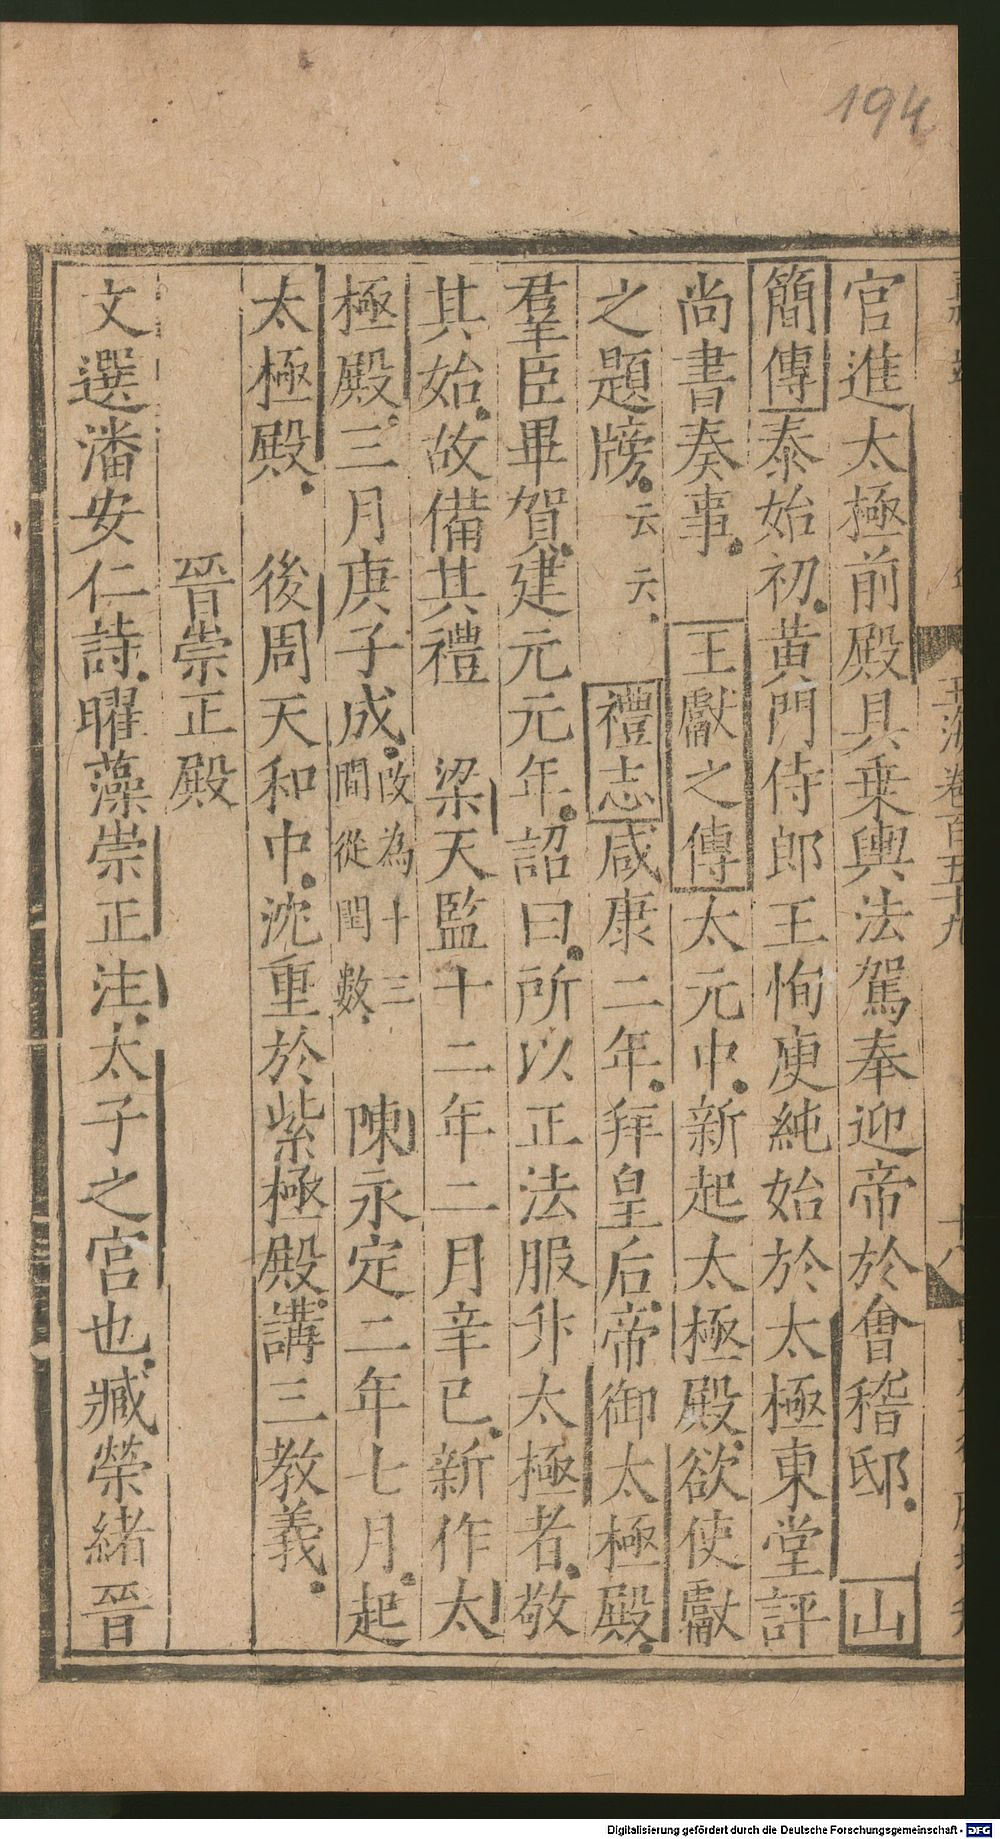 194
玉海卷百五十九
十八
官進太極前殿具乗輿法駕奉迎帝於會稽邸 山
簡傳泰始初黄門侍郎王恂庾純始於太極東堂評
尚書奏事 王獻之傳太元中新起太極殿欲使獻
之題牓云云 禮志咸康二年拜皇后帝御太極殿
羣臣畢賀建元元年詔曰所以正法服升太極者敬
其始故備其禮 梁天監十二年二月辛巳新作太
極殿三月庚子成改為十三間從閏數 陳永定二年七月起
太極殿 後周天和中沈重於紫極殿講三教義
晉崇正殿
文選潘安仁詩曜藻崇正注太子之宫也臧榮緒晉
Digitalisierung gefördert durch die Deutsche Forschungsgemeinschaft - DFG